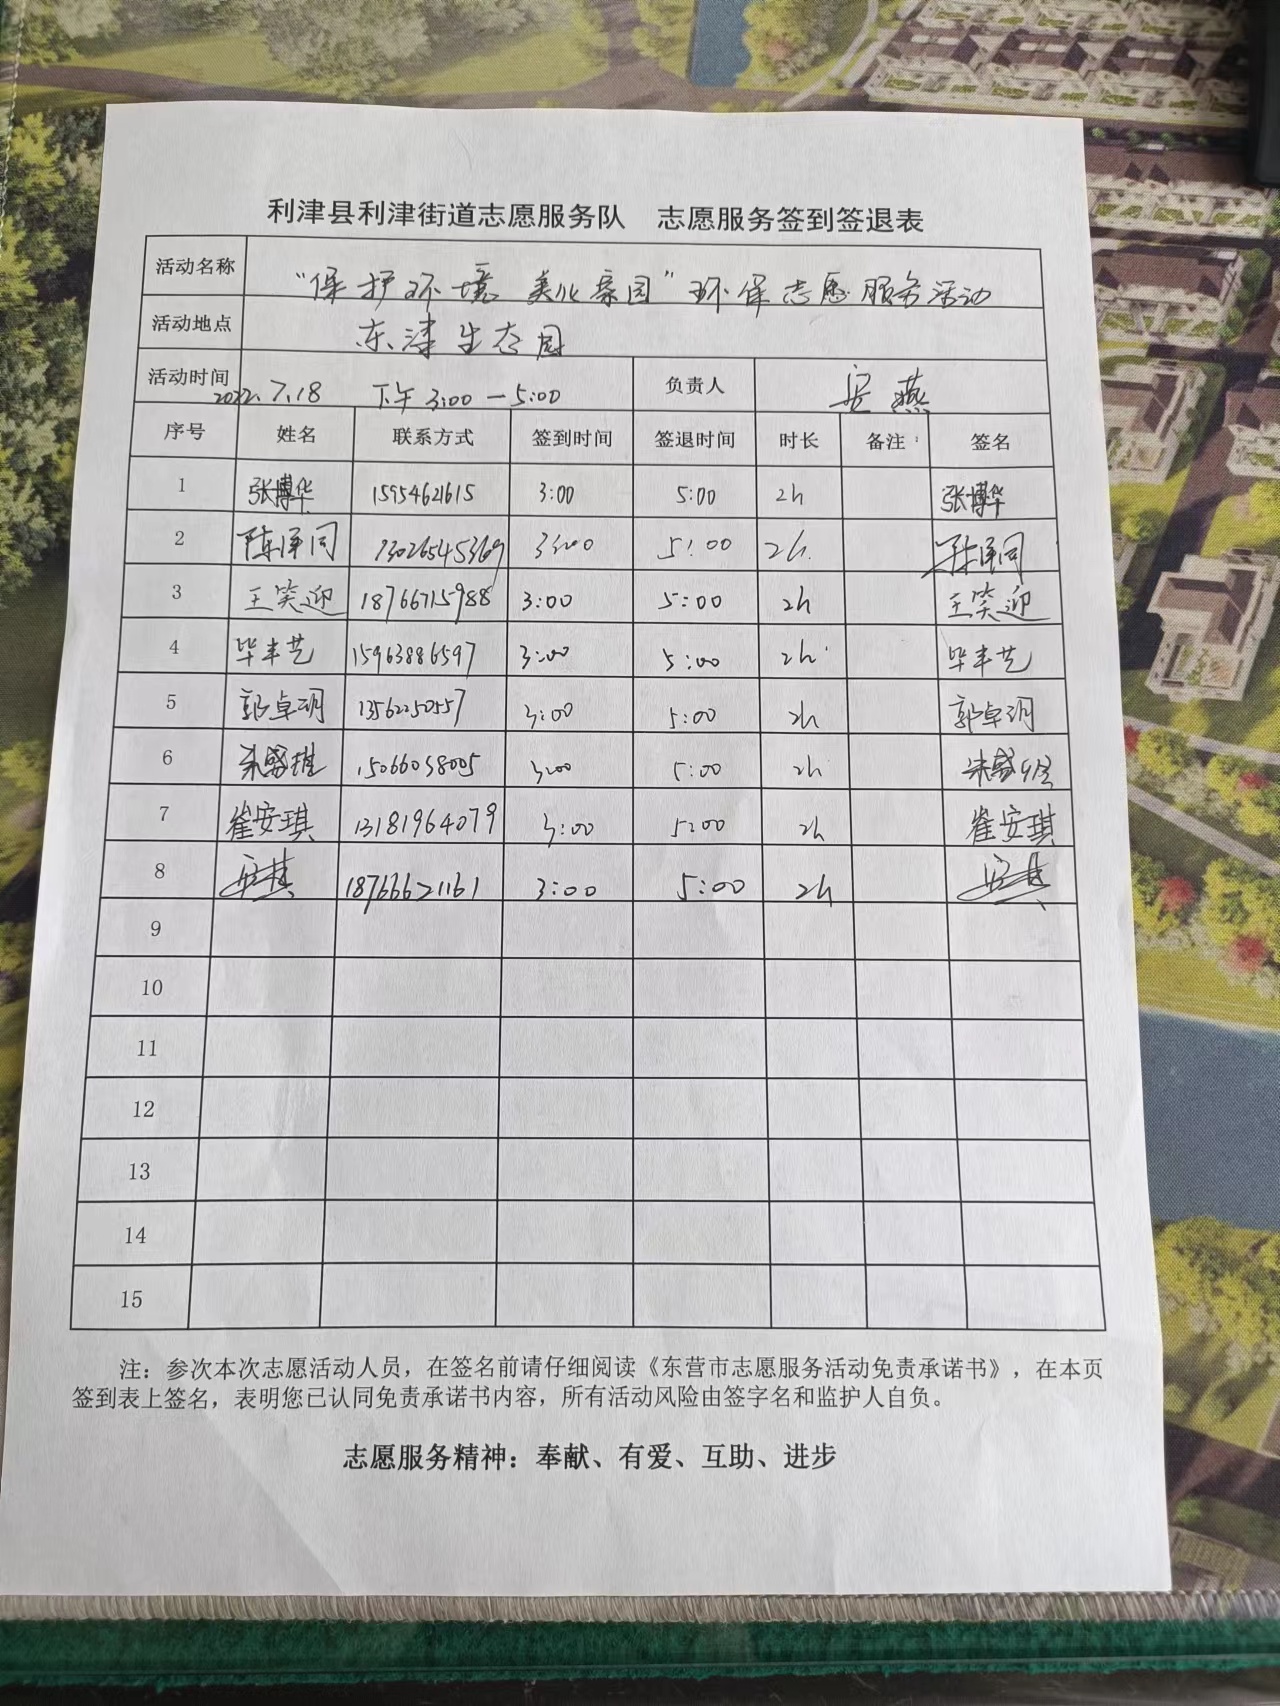 利津县利津街道志愿服务队 志愿服务签到签退表
活动名称 "保护环境 美化家园"环保志愿服务活动
活动地点 东津生态园
活动时间 2022.7.18 下午 3:00—5:00 负责人 安燕
序号 姓名 联系方式 签到时间 签退时间 时长 备注: 签名
1 张博华 15954621615 3:00 5:00 2h 张博华
2 陈泽同 13026545369 3:00 5:00 2h. 陈泽同
3 王笑迎 18766715988 3:00 5:00 2h 王笑迎
4 毕丰艺 15963886597 3:00 5:00 2h 毕丰艺
5 郭卓玥 13562250557 3:00 5:00 2h 郭卓玥
6 15066038005 3:00 5:00 2h
7 崔安琪 13181964079 3:00 5:00 2h 崔安琪
8 18766621161 3:00 5:00 2h
9
10
11
12
13
14
15
注：参次本次志愿活动人员，在签名前请仔细阅读《东营市志愿服务活动免责承诺书》，在本页
签到表上签名，表明您已认同免责承诺书内容，所有活动风险由签字名和监护人自负。
志愿服务精神：奉献、有爱、互助、进步